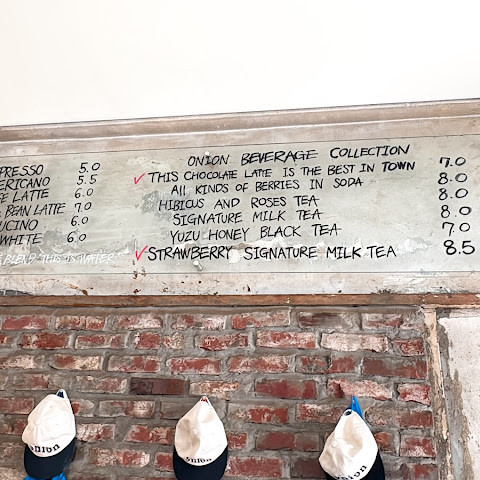 PRESSO 5.0
ERICANO 5.5
LATTE 6.0
BEAN LATTE 7.0
UCINO 6.0
WHITE 6.0
BLEND THIS IS WATER
ONION BEVERAGE COLLECTION
THIS CHOCOLATE LATTE IS THE BEST IN TOWN 7.0
All KINDS OF BERRIES IN SODA 8.0
HIBICUS AND ROSES TEA 8.0
SIGNATURE MILK TEA 8.0
YUZU HONEY BLACK TEA 7.0
STRAWBERRY SIGNATURE MILK TEA 8.5
onion
onion
onion